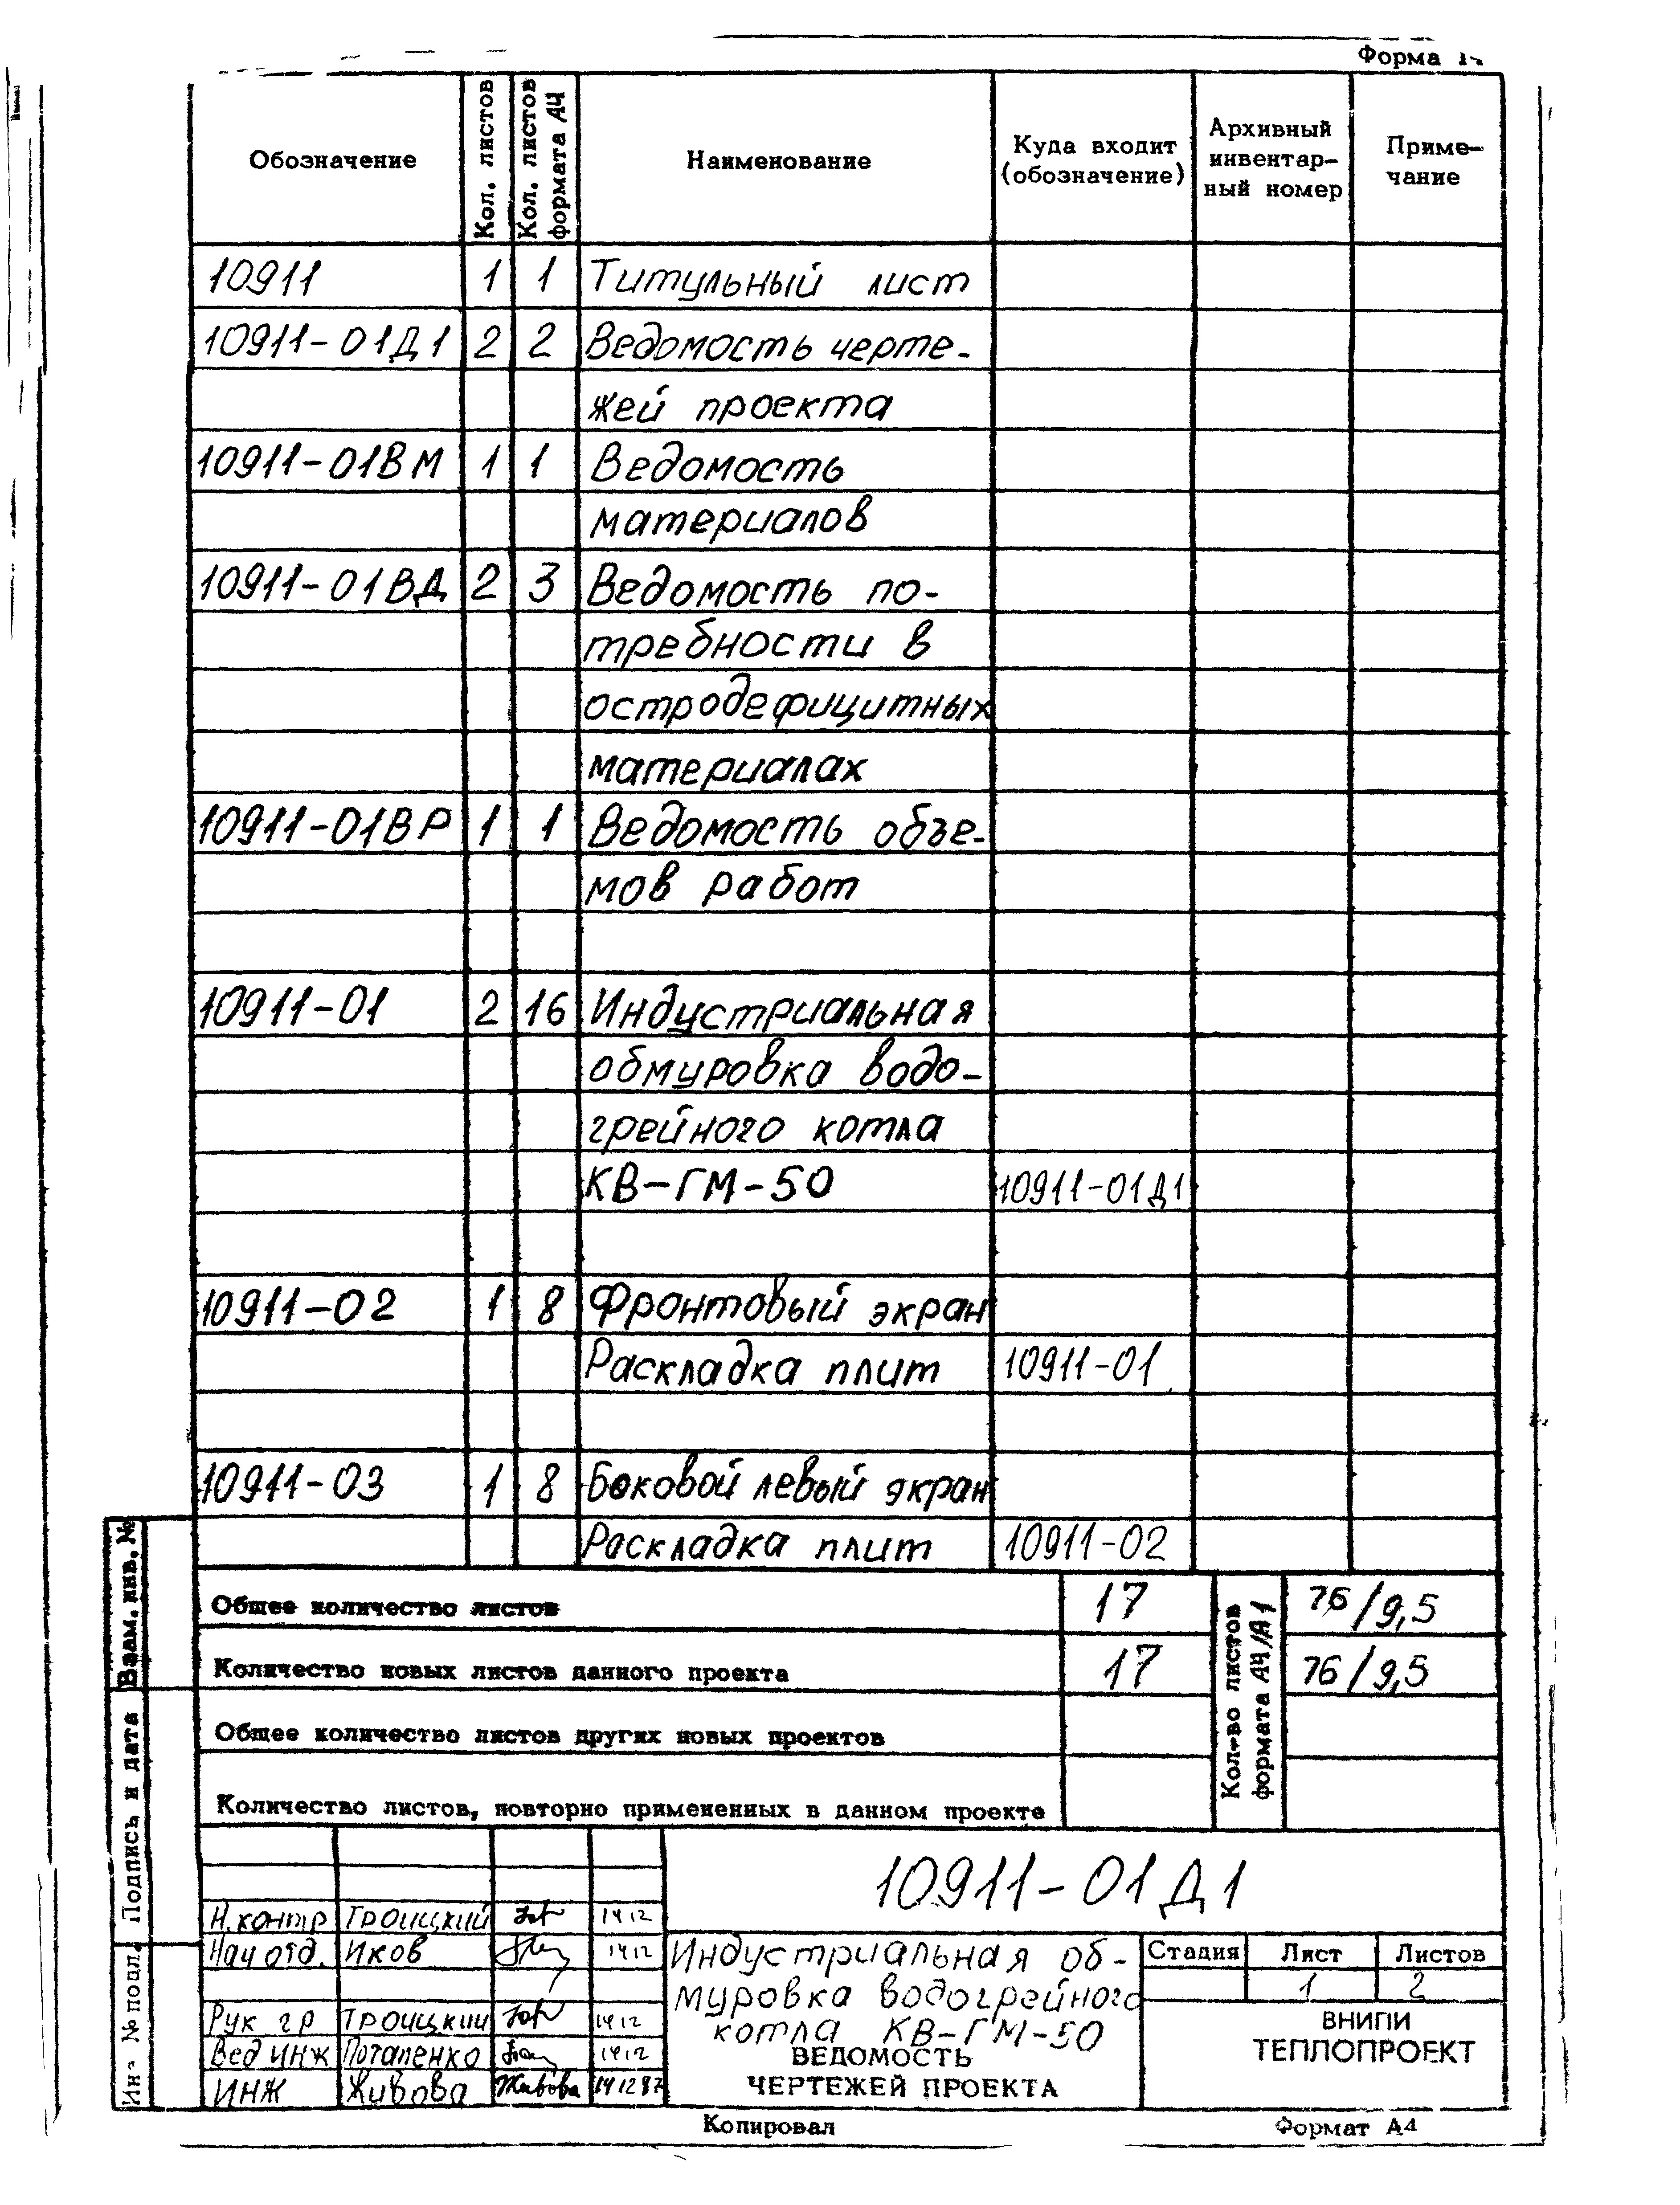 Форма
Обозначение
Кол. листов
Кол. листов формата А4
Наименование
Куда входит (обозначение)
Архивный инвентар-ный номер
Приме-чание
10911 1 1 Титульный лист
10911-01Д1 2 2 Ведомость черте-
жей проекта
10911-01ВМ 1 1 Ведомость
материалов
10911-01ВД 2 3 Ведомость по-
требности в
остродефицитных
материалах
10911-01ВР 1 1 Ведомость объе-
мов работ
10911-01 2 16 Индустриальная
обмуровка водо-
грейного котла
КВ-ГМ-50 10911-01Д1
10911-02 1 8 Фронтовый экран
Раскладка плит 10911-01
10911-03 1 8 Боковой левый экран
Раскладка плит 10911-02
Общее количество листов 17 76/9,5
Количество новых листов данного проекта 17 76/9,5
Общее количество листов других новых проектов
Количество листов, повторно примененных в данном проекте
Кол-во листов
формата А4/А1
Взам. инв. №
Подпись и дата
№ подл.
10911-01Д1
Н.контр Троицкий 14 12
Нач отд. Иков 14 12
Рук гр Троицкий 14 12
Вед инж Потапенко 14 12
ИНЖ Живова Живова 14 12 87
Индустриальная об-
муровка водогрейного
котла КВ-ГМ-50
ВЕДОМОСТЬ
ЧЕРТЕЖЕЙ ПРОЕКТА
Стадия Лист Листов
1 2
ВНИПИ
ТЕПЛОПРОЕКТ
Копировал
Формат А4